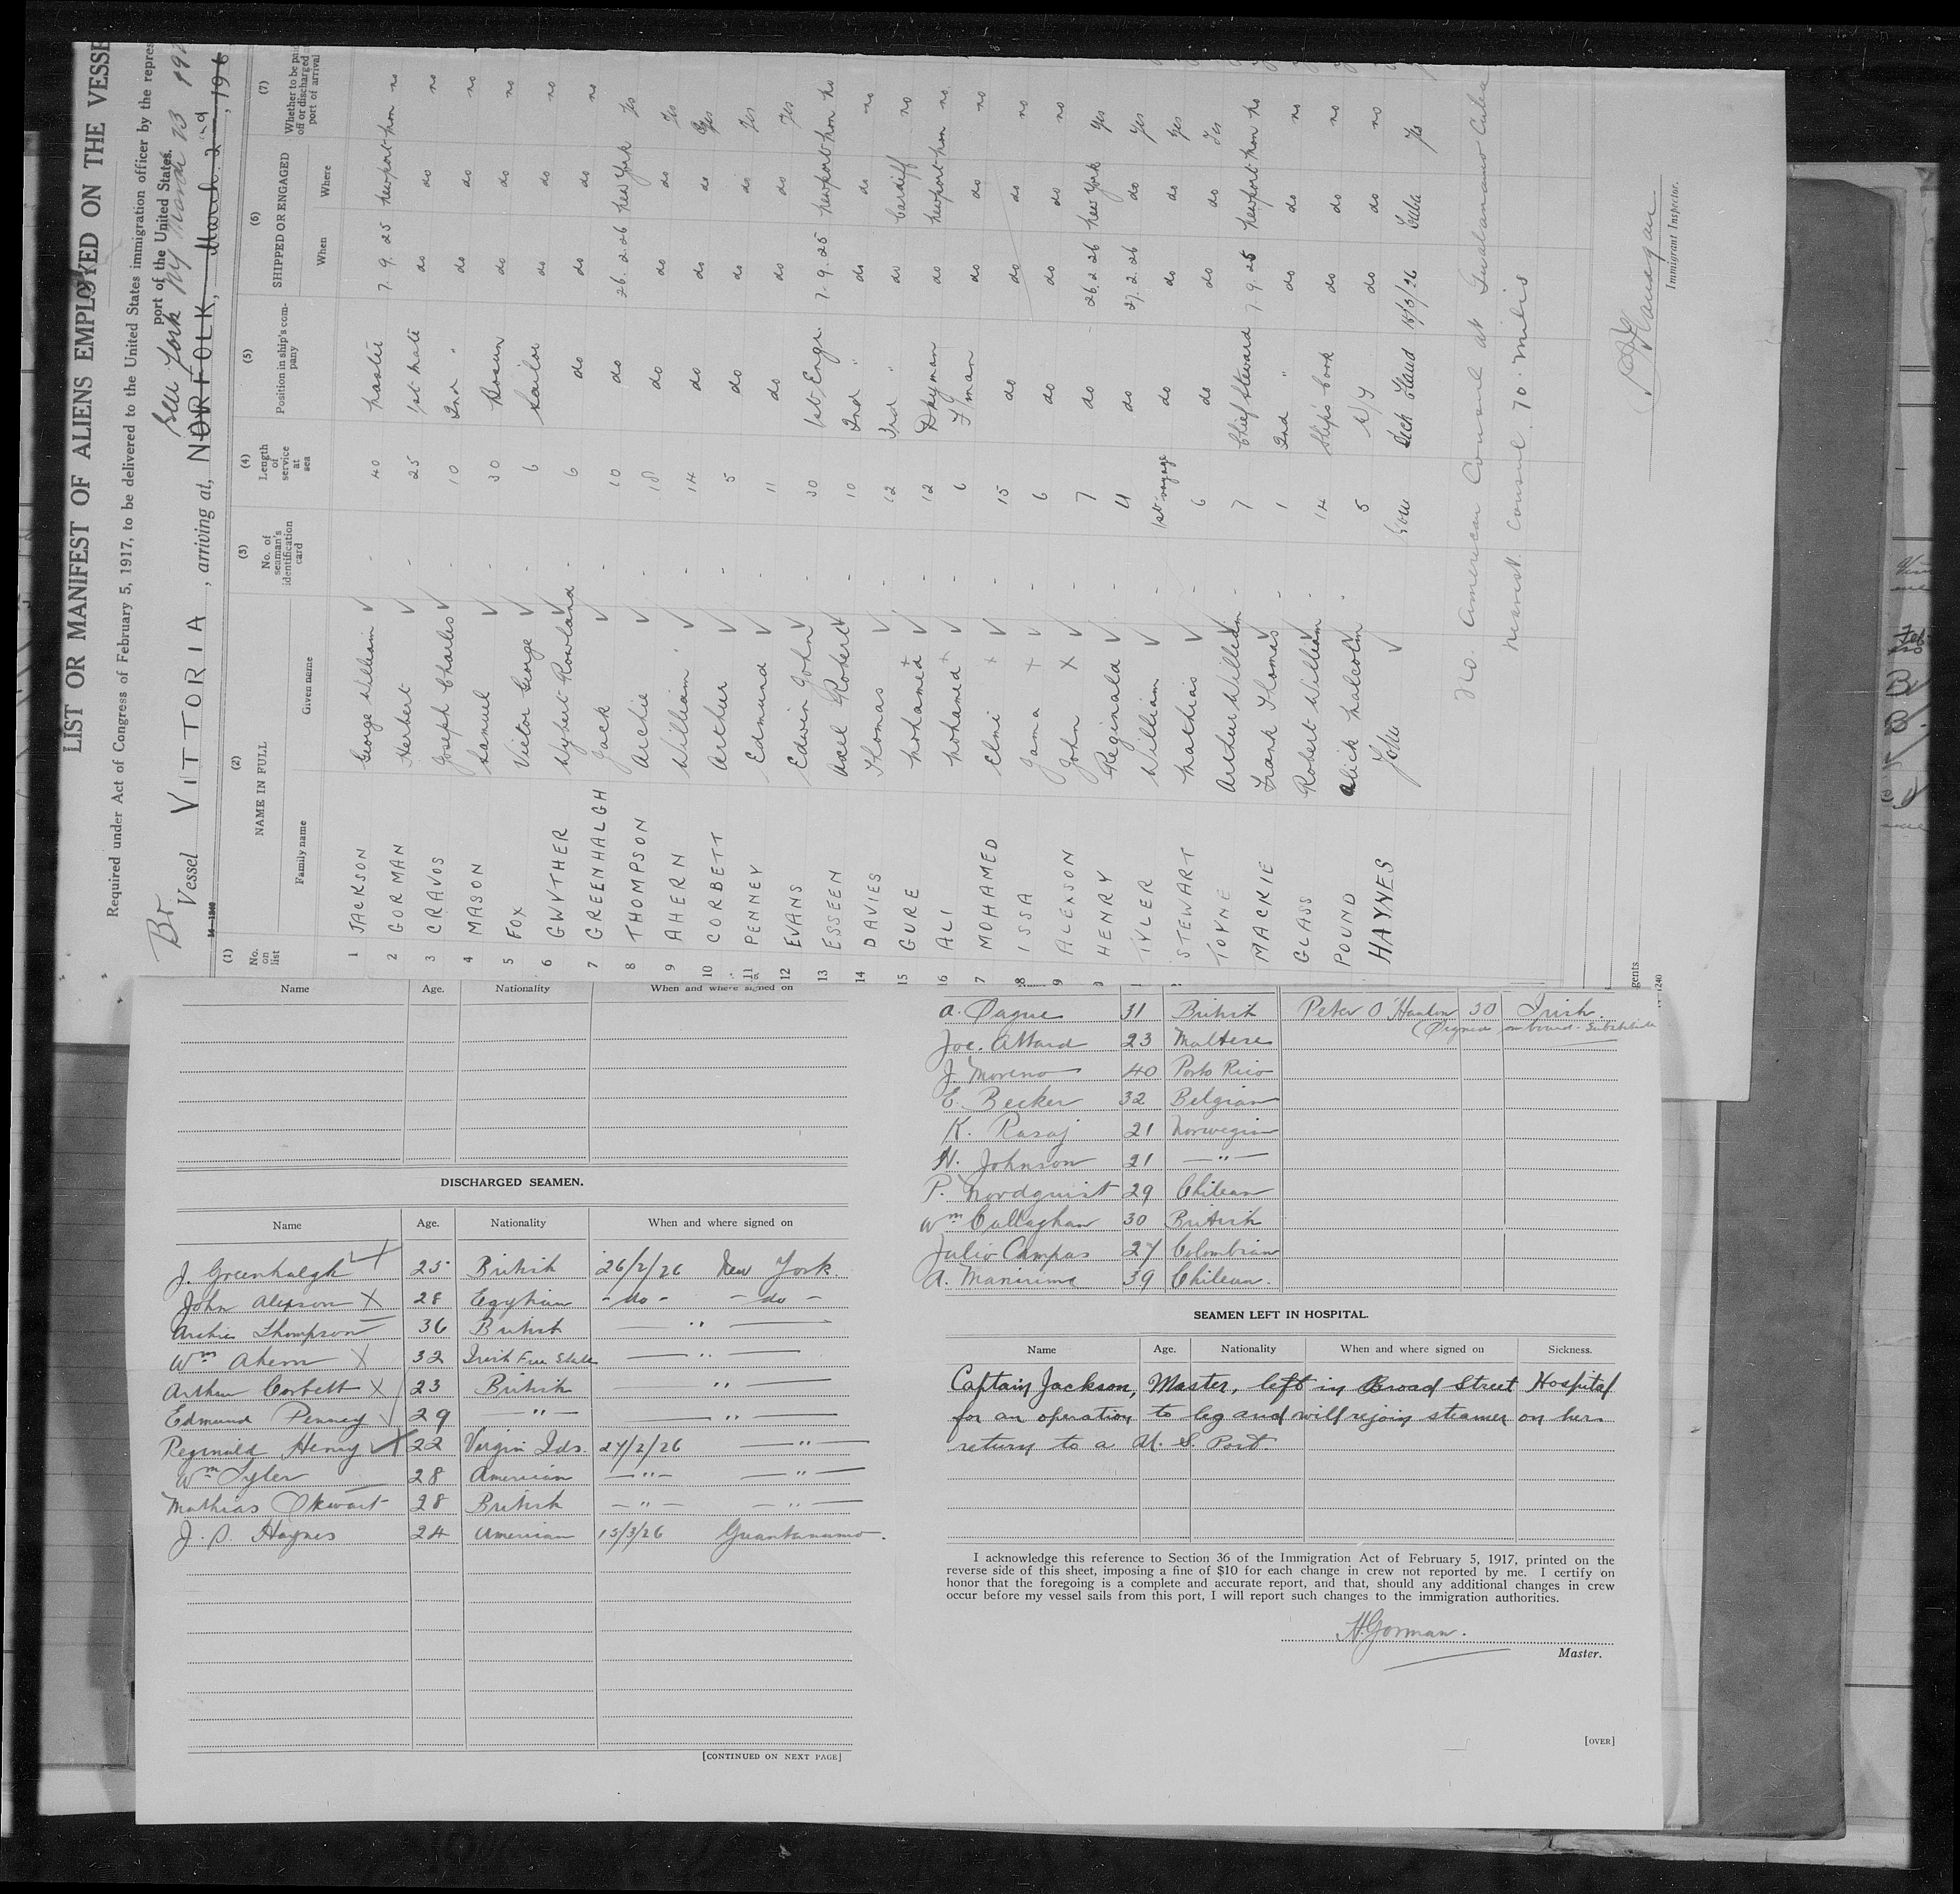 LIST OR MANIFEST OF ALIENS EMPLOYED ON THE VESSE
Required under Act of Congress of February 5, 1917, to be delivered to the United States immigration officer by the repres
port of the United States.
New York NY March 13 19
Br. Vessel VITTORIA, arriving at, NORFOLK, March 2nd, 19
14—1240
(1) (2) (3) (4) (5) (6) (7)
No. on list NAME IN FULL No. of seaman's identification card Length of service at sea Position in ship's company SHIPPED OR ENGAGED Whether to be paid off or discharged port of arrival
Family name Given name When Where
1 JACKSON George William ✓ - 40 Master 7.9.25 Newport Mon no
2 GORMAN Herbert ✓ 25 1st Mate do do no
3 CRAVOS Joseph Charles ✓ - 10 2nd " do do no
4 MASON Samuel ✓ - 30 Bosun do do no
5 FOX Victor George ✓ - 6 Sailor do do no
6 GWYTHER Wybert Rowland ✓ 6 do do do no
7 GREENHALGH Jack ✓ - 10 do 26.2.26 New York Yes
8 THOMPSON Archie ✓ - 18 do do do Yes
9 AHERN William ✓ - 14 do do do Yes
10 CORBETT Arthur ✓ - 5 do do do Yes
11 PENNEY Edmund ✓ - 11 do do do Yes
12 EVANS Edwin John ✓ - 30 1st Engr. 7.9.25 Newport Mon no
13 ESSEEN Axel Robert ✓ - 10 2nd " do do no
14 DAVIES Thomas ✓ - 12 3rd " do Cardiff no
15 GURE Mohamed + ✓ - 12 Dkyman do Newport Mon no
16 ALI Mohamed + ✓ - 6 F'man do do no
7 MOHAMED Elmi + ✓ - 15 do do do no
8 ISSA Jama + ✓ - 6 do do do no
9 ALEXSON John X ✓ - 7 do 26.2.26 New York Yes
HENRY Reginald ✓ - 4 do 27.2.26 do Yes
TYLER William ✓ - 1st voyage do do do Yes
STEWART Mathias ✓ - 6 do do do Yes
TOYNE Arthur William ✓ - 7 Chief Steward 7.9.25 Newport Mon no
MACKIE Frank Thomas ✓ - 1 2nd " do do no
GLASS Robert William ✓ - 14 Ships Cook do do no
POUND Alick Malcolm - 5 do do no
HAYNES John ✓ Deck Hand 15/3/26 Cuba Yes
No. American Consul at Guatanamo Cuba
nearest Consul 70. Miles
Immigrant Inspector.
gents
1240
Name Age. Nationality When and where signed on
DISCHARGED SEAMEN.
Name Age. Nationality When and where signed on
J. Greenhalgh X 25 British 26/2/26 New York.
John Alexson X 28 Egyptian - do - - do -
Archie Thompson 36 British — " —
Wm Ahern X 32 Irish Free State — " —
Arthur Corbett X 23 British — " —
Edmund Penney 29 — " — — " —
Reginald Henry 22 Virgin Ids. 27/2/26 — " —
Wm Tyler 28 American — " — — " —
Mathias Stewart 28 British — " — — " —
J. S. Haynes 24 American 15/3/26 Guantanamo.
[CONTINUED ON NEXT PAGE]
A. Dague 31 British Peter O'Hanlon 30 Irish.
(Signed on board. Substitute
Joe. Attard 23 Maltese
J. Moreno 40 Porto Rico
E. Becker 32 Belgian
K. Rasaj 21 Norwegian
H. Johnson 21 — " —
P. Nordquist 29 Chilean
Wm Callaghan 30 British
Julio Campas 27 Colombian
A. 39 Chilean.
SEAMEN LEFT IN HOSPITAL.
Name Age. Nationality When and where signed on Sickness.
Captain Jackson, Master, left in Broad Street Hospital
for an operation to leg and will rejoin steamer on her
return to a U. S. Port.
I acknowledge this reference to Section 36 of the Immigration Act of February 5, 1917, printed on the
reverse side of this sheet, imposing a fine of $10 for each change in crew not reported by me. I certify on
honor that the foregoing is a complete and accurate report, and that, should any additional changes in crew
occur before my vessel sails from this port, I will report such changes to the immigration authorities.
H. Gorman.
Master.
[OVER]